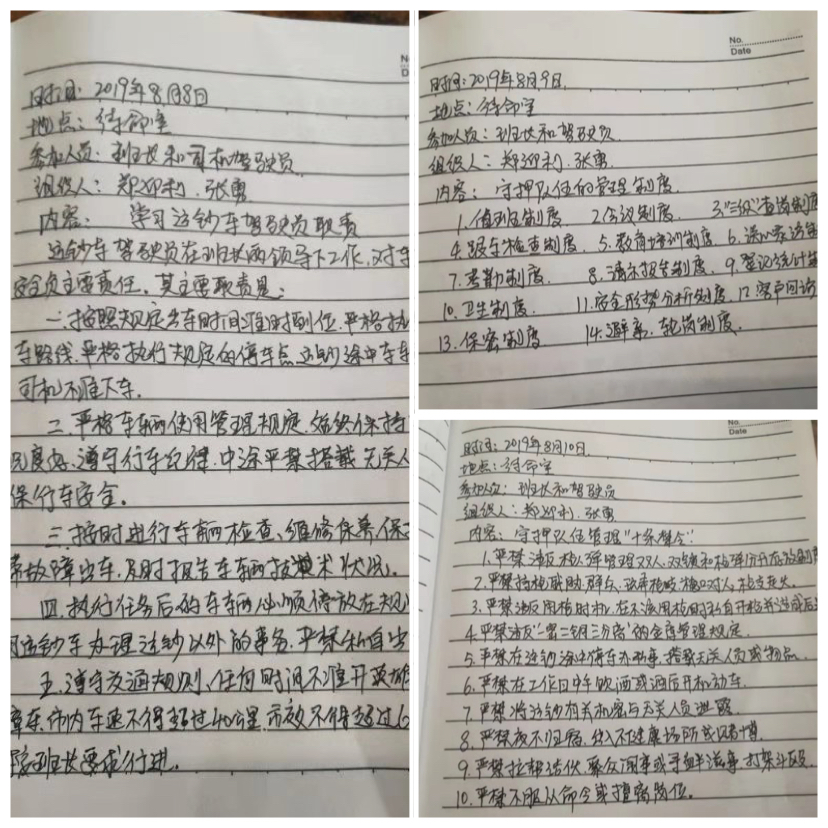 时间：2019年8月8日
地点：待命室
参加人员：班长和司机驾驶员
组织人：郑迎利、张勇
内容：学习运钞车驾驶员职责
运钞车驾驶员在班长两领导下工作，对车
安全负主要责任。其主要职责是：
一、按照规定出车时间准时到位，严格执
车路线，严格执行规定的停车点，运钞途中车
司机不准下车。
二、严格车辆使用管理规定，始终保持
况度内，遵守行车纪律，中途严禁搭载无关人
保行车安全。
三、按时进行车辆检查、维修保养，保
带故障出车，及时报告车辆的技术状况。
四、执行任务后的车辆必须停放在规
用运钞车办理运钞以外的事务，严禁私自出
五、遵守交通规则，任何时间不准开英雄
车，市内车速不得超过40公里，市效不得超过6
班长要求行进。
No.
Date
时间：2019年8月9日
地点：待命室
参加人员：班长和驾驶员
组织人：郑迎利、张勇
内容：守押队伍的管理制度
1.值班制度 2.会议制度 3."三级"查岗制度
4.跟车检查制度、5.教育培训制度、6.谈心家访
7.考勤制度、8.请示报告制度、9.登记统计
10.卫生制度、11.安全形势分析制度、12.客户回访
13.保密制度 14.避亲、轮岗制度、
No.
Date
时间：2019年8月10日
地点：待命室
参加人员：班长和驾驶员
组织人：郑迎利、张勇
内容：守押队伍管理"十条禁令"
1.严禁违反枪、弹管理双人、双锁和枪弹分开存放制度
2.严禁持枪联防群众、枪口对人、枪支走火。
3.严禁违反用枪时机，在不该用枪时私自开枪并造成后
4.严禁违反"一密二钥三分离"的金库管理规定。
5.严禁在运钞途中停车办私事、搭载无关人员或物品。
6.严禁在工作日中午饮酒或酒后开机动车。
7.严禁将运钞有关机密与无关人员泄露。
8.严禁夜不归宿，出入不健康场所或赌博。
9.严禁拉帮结伙、聚众闹事或寻衅滋事、打架斗殴。
10.严禁不服从命令或擅离岗位。